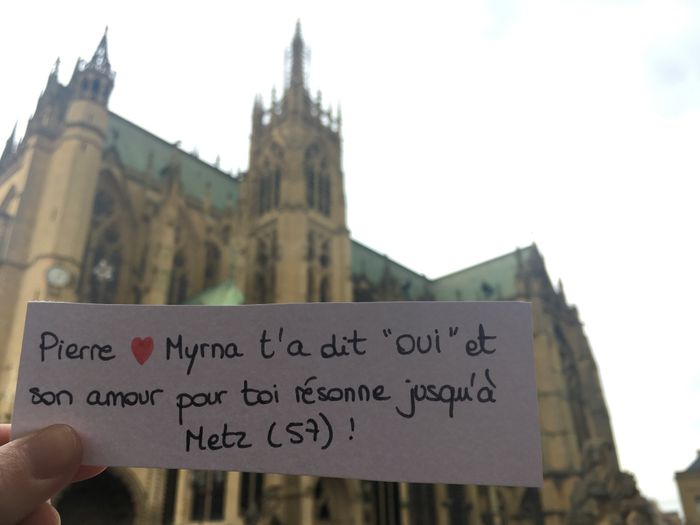 Pierre ❤ Myrna t'a dit "oui" et
son amour pour toi résonne jusqu'à
Metz (57) !